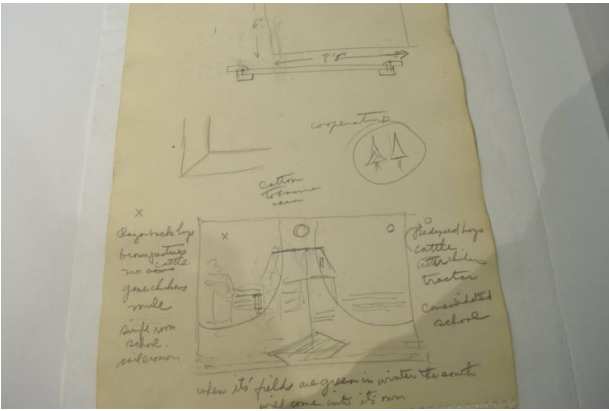 6'
7'8"
cooperative
cotton
tobacco
corn
x
Razorback hogs
brown pastures
no cattle
game chickens
mule
single room
school
x
o
o
Pedigreed hogs
cattle
tractor
Consolidated
school
when its' fields are green in winter the south
will come into its own